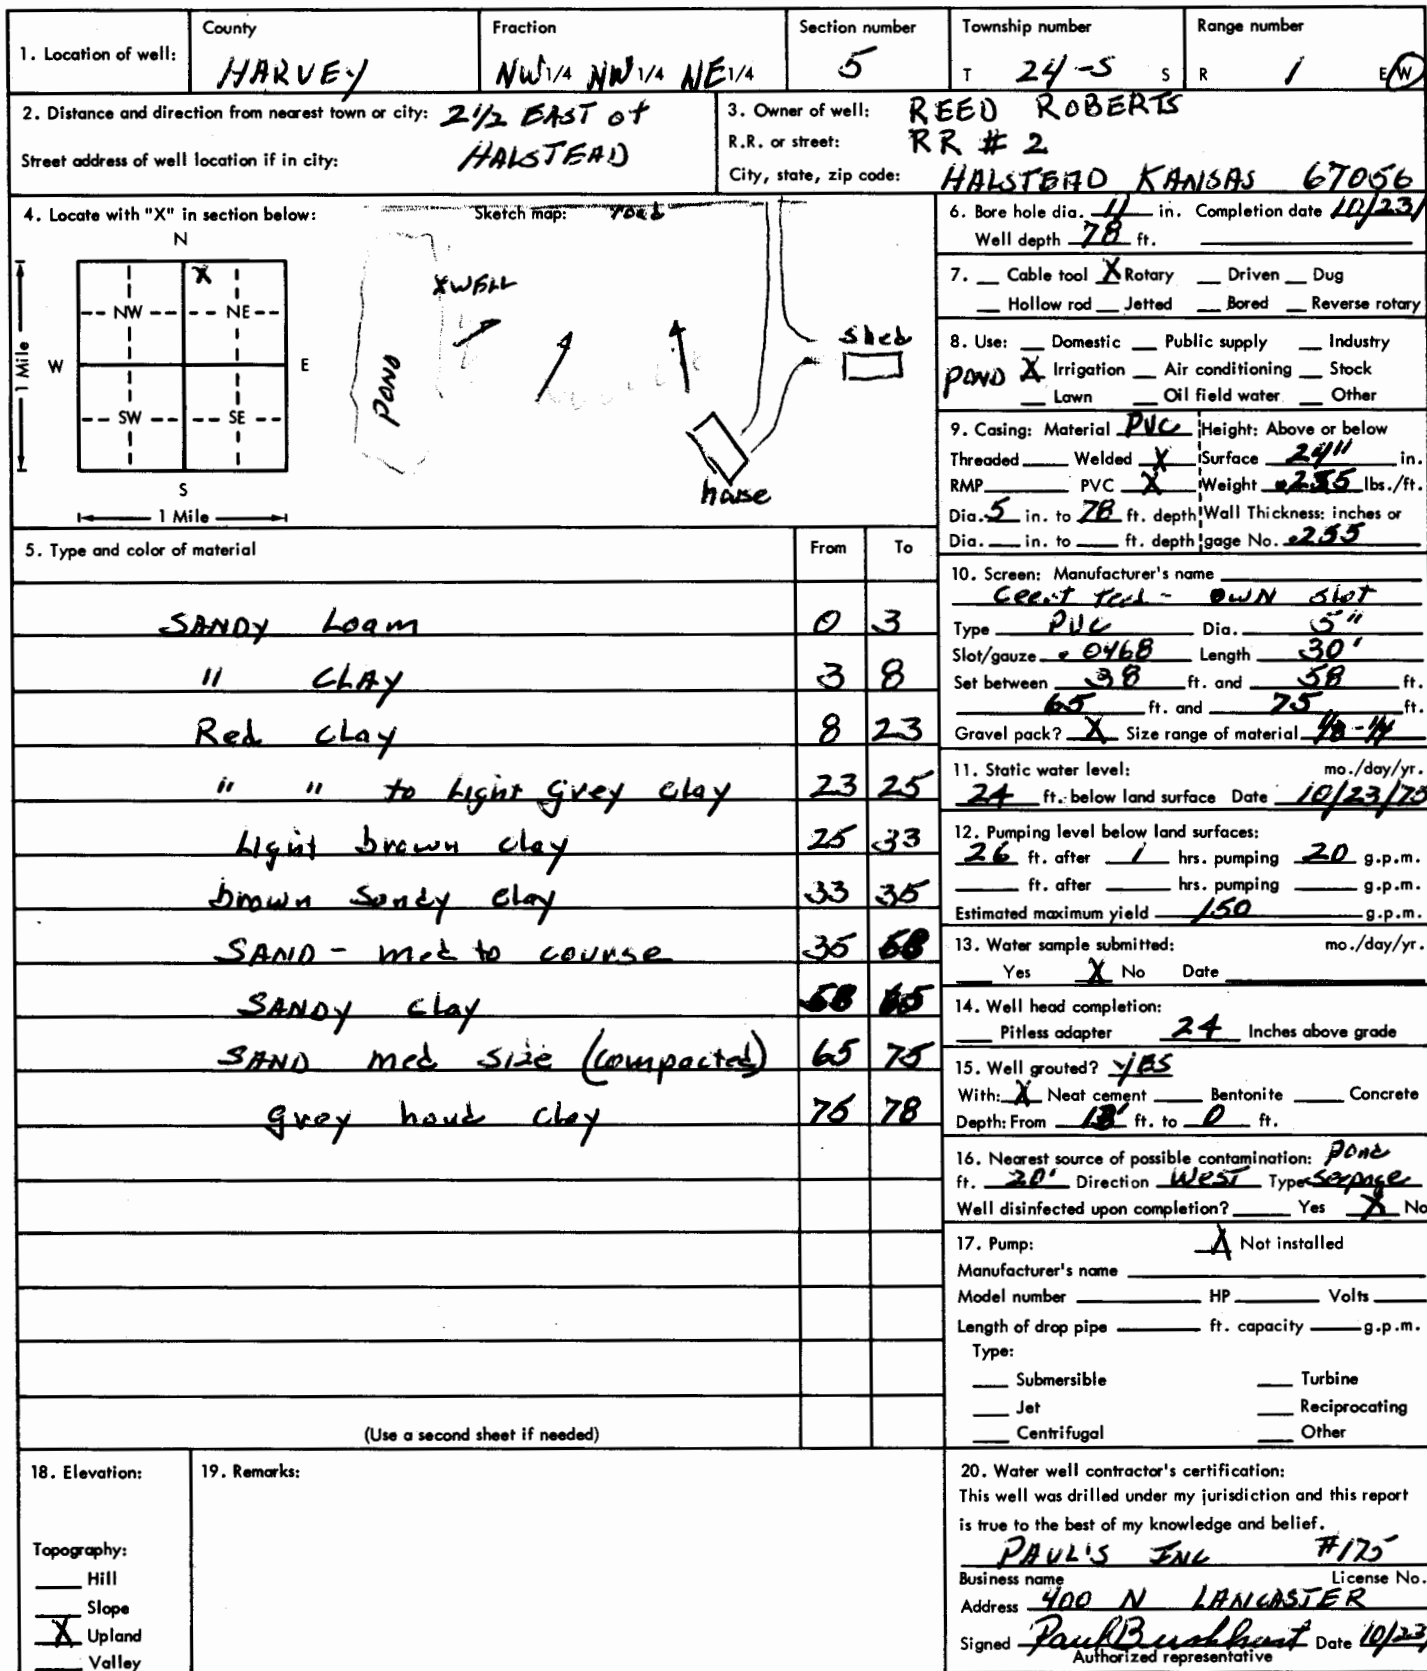 1. Location of well: County HARVEY Fraction NW 1/4 NW 1/4 NE 1/4 Section number 5 Township number T 24-S S Range number R 1 E/W
2. Distance and direction from nearest town or city: 2 1/2 EAST of
HALSTEAD
Street address of well location if in city:
3. Owner of well: REED ROBERTS
R.R. or street: RR # 2
City, state, zip code: HALSTEAD KANSAS 67056
4. Locate with "X" in section below:
N
X
NW NE
W E
SW SE
S
1 Mile
1 Mile
Sketch map: road
X WELL
POND
shed
house
5. Type and color of material From To
SANDY Loam 0 3
" CLAY 3 8
Red clay 8 23
" " to light grey clay 23 25
Light brown clay 25 33
brown sandy clay 33 35
SAND - med to course 35 58
SANDY clay 58 65
SAND med size (compacted) 65 75
grey hard clay 75 78
(Use a second sheet if needed)
6. Bore hole dia. 11 in. Completion date 10/23/
Well depth 78 ft.
7. Cable tool X Rotary Driven Dug
Hollow rod Jetted Bored Reverse rotary
8. Use: Domestic Public supply Industry
POND X Irrigation Air conditioning Stock
Lawn Oil field water Other
9. Casing: Material PVC Height: Above or below
Threaded Welded X Surface 24" in.
RMP PVC X Weight .255 lbs./ft.
Dia. 5 in. to 78 ft. depth Wall Thickness: inches or
Dia. in. to ft. depth gage No. .255
10. Screen: Manufacturer's name
OWN slot
Type PVC Dia. 5"
Slot/gauze .0468 Length 30'
Set between 38 ft. and 58 ft.
65 ft. and 75 ft.
Gravel pack? X Size range of material 1/8 - 1/4
11. Static water level: mo./day/yr.
24 ft. below land surface Date 10/23/75
12. Pumping level below land surfaces:
26 ft. after 1 hrs. pumping 20 g.p.m.
ft. after hrs. pumping g.p.m.
Estimated maximum yield 150 g.p.m.
13. Water sample submitted: mo./day/yr.
Yes X No Date
14. Well head completion:
Pitless adapter 24 Inches above grade
15. Well grouted? yES
With: X Neat cement Bentonite Concrete
Depth: From ft. to 0 ft.
16. Nearest source of possible contamination: pond
ft. 20' Direction West Type seepage
Well disinfected upon completion? Yes X No
17. Pump: X Not installed
Manufacturer's name
Model number HP Volts
Length of drop pipe ft. capacity g.p.m.
Type:
Submersible Turbine
Jet Reciprocating
Centrifugal Other
18. Elevation:
Topography:
Hill
Slope
X Upland
Valley
19. Remarks:
20. Water well contractor's certification:
This well was drilled under my jurisdiction and this report
is true to the best of my knowledge and belief.
PAUL'S INC #175
Business name License No.
Address 400 N LANCASTER
Signed Paul Date 10/23
Authorized representative